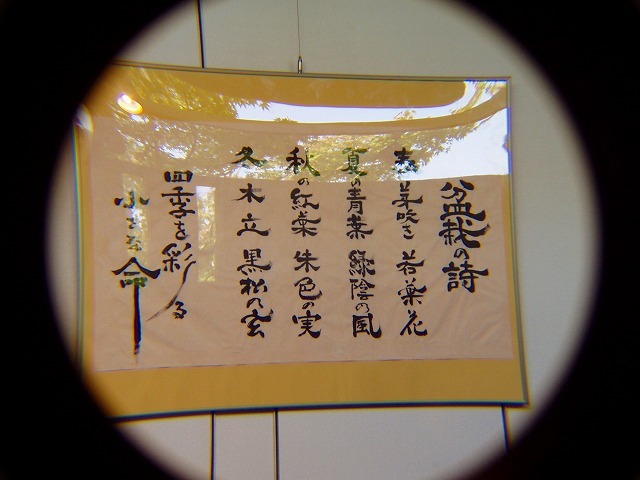 盆栽の詩
春 芽吹き 若葉 花
夏の青葉 緑陰の風
秋の紅葉 朱色の実
冬 木立 黒松の玄
四季を彩る
小さな命